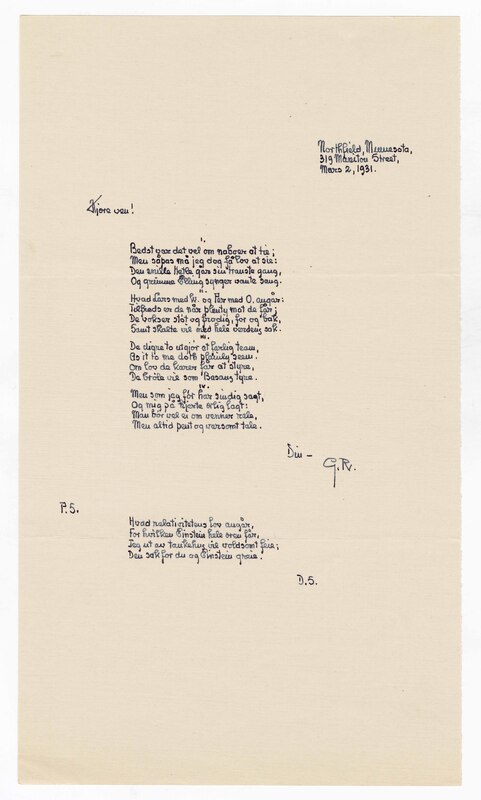 Northfield, Minnesota,
319 Manitou Street,
Mars 2, 1931.
Kjære ven!
I.
Bedst var det vel om naboer at tie;
Men såpas må jeg dog få lov at sie:
Den enkle Hekle går sin trauste gang,
Og grimme Elling synger vante sang.
II.
Hvad Lars med W. og Per med O. angår:
Tilfreds er de når plenty mat de får;
De vokser stöt og frodig, for og bak,
Samt skaete vil med hele verdens sak.
III.
De digre to utgjör et farlig team,
As it to me doth plainly seem.
Om lov de karer får at styre,
De bröle vil som Basans tyre.
IV.
Men som jeg för har sindig sagt,
Og mig på hjerte ærlig lagt:
Man bör vel ei om venner rale,
Men altid pent og varsomt tale.
Din —
G.R.
P.S.
Hvad relativitetens lov angår,
For hvilken Einstein hele æren får,
Jeg ut av tankehus vil voldsomt feie;
Den sak får du og Einstein greie.
D.S.